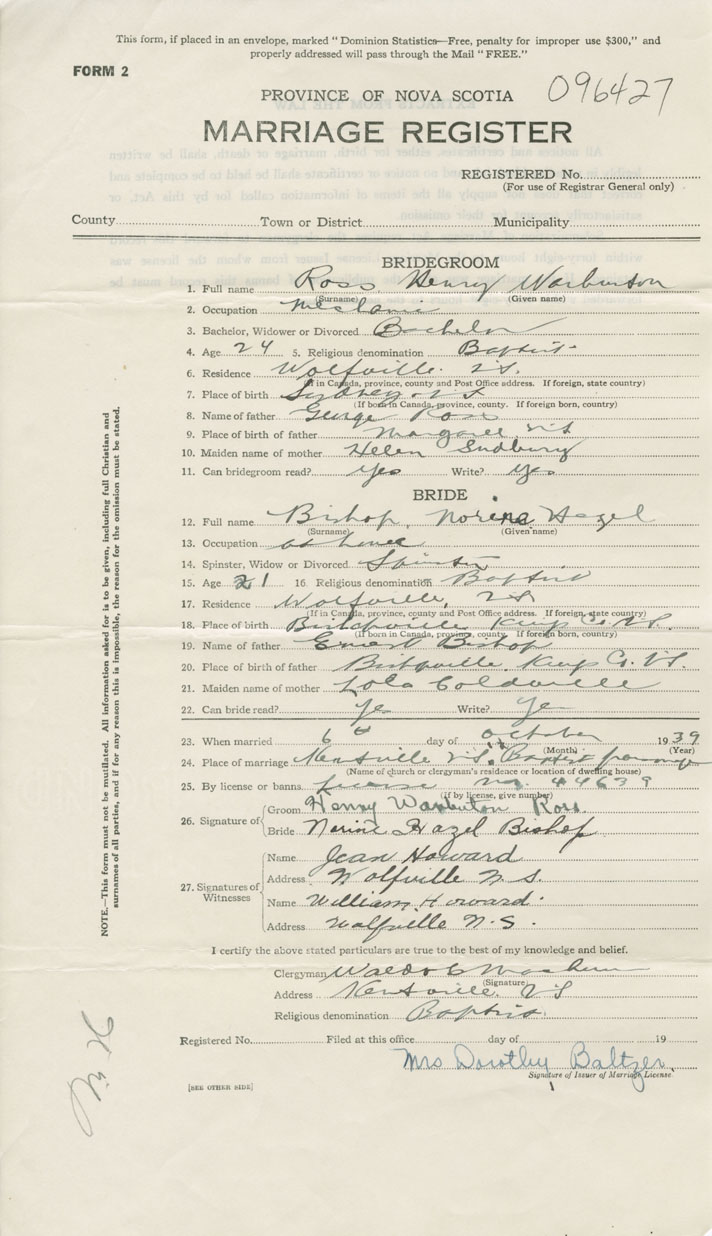 This form, if placed in an envelope, marked "Dominion Statistics—Free, penalty for improper use $300," and
properly addressed will pass through the Mail "FREE."
FORM 2
PROVINCE OF NOVA SCOTIA 096427
MARRIAGE REGISTER
REGISTERED No.
(For use of Registrar General only)
County Town or District Municipality
BRIDEGROOM
1. Full name Ross Henry Warburton
(Surname) (Given name)
2. Occupation Mechanic
3. Bachelor, Widower or Divorced Bachelor
4. Age 24 5. Religious denomination Baptist
6. Residence Wolfville N.S.
(If in Canada, province, county and Post Office address. If foreign, state country)
7. Place of birth Sydney N S
(If born in Canada, province, county. If foreign born, country)
8. Name of father George Ross
9. Place of birth of father Margaree N S
10. Maiden name of mother Helen Sudbury
11. Can bridegroom read? Yes Write? Yes
BRIDE
12. Full name Bishop, Norine Hazel
(Surname) (Given name)
13. Occupation at home
14. Spinster, Widow or Divorced Spinster
15. Age 21 16. Religious denomination Baptist
17. Residence Wolfville, N S
(If in Canada, province, county and Post Office address. If foreign, state country)
18. Place of birth Bishopville Kings Co. N.S.
(If born in Canada, province, county. If foreign born, country)
19. Name of father Ernest Bishop
20. Place of birth of father Bishopville Kings Co. N.S.
21. Maiden name of mother Lola Coldwell
22. Can bride read? Yes Write? Yes
23. When married 6th day of October 1939
(Month) (Year)
24. Place of marriage Kentville N.S. Baptist parsonage
(Name of church or clergyman's residence or location of dwelling house)
25. By license or banns license no. 44639
(if by license, give number)
26. Signature of Groom Henry Warburton Ross
Bride Norine Hazel Bishop
27. Signatures of Witnesses
Name Jean Howard
Address Wolfville N.S.
Name William Howard
Address Wolfville N.S.
I certify the above stated particulars are true to the best of my knowledge and belief.
Clergyman Waldo C
(Signature)
Address Kentville, N S
Religious denomination Baptist
Registered No. Filed at this office day of 19
Mrs Dorothy Baltzer
Signature of Issuer of Marriage License.
[SEE OTHER SIDE]
NOTE.—This form must not be mutilated. All information asked for is to be given, including full Christian and
surnames of all parties, and if for any reason this is impossible, the reason for the omission must be stated.